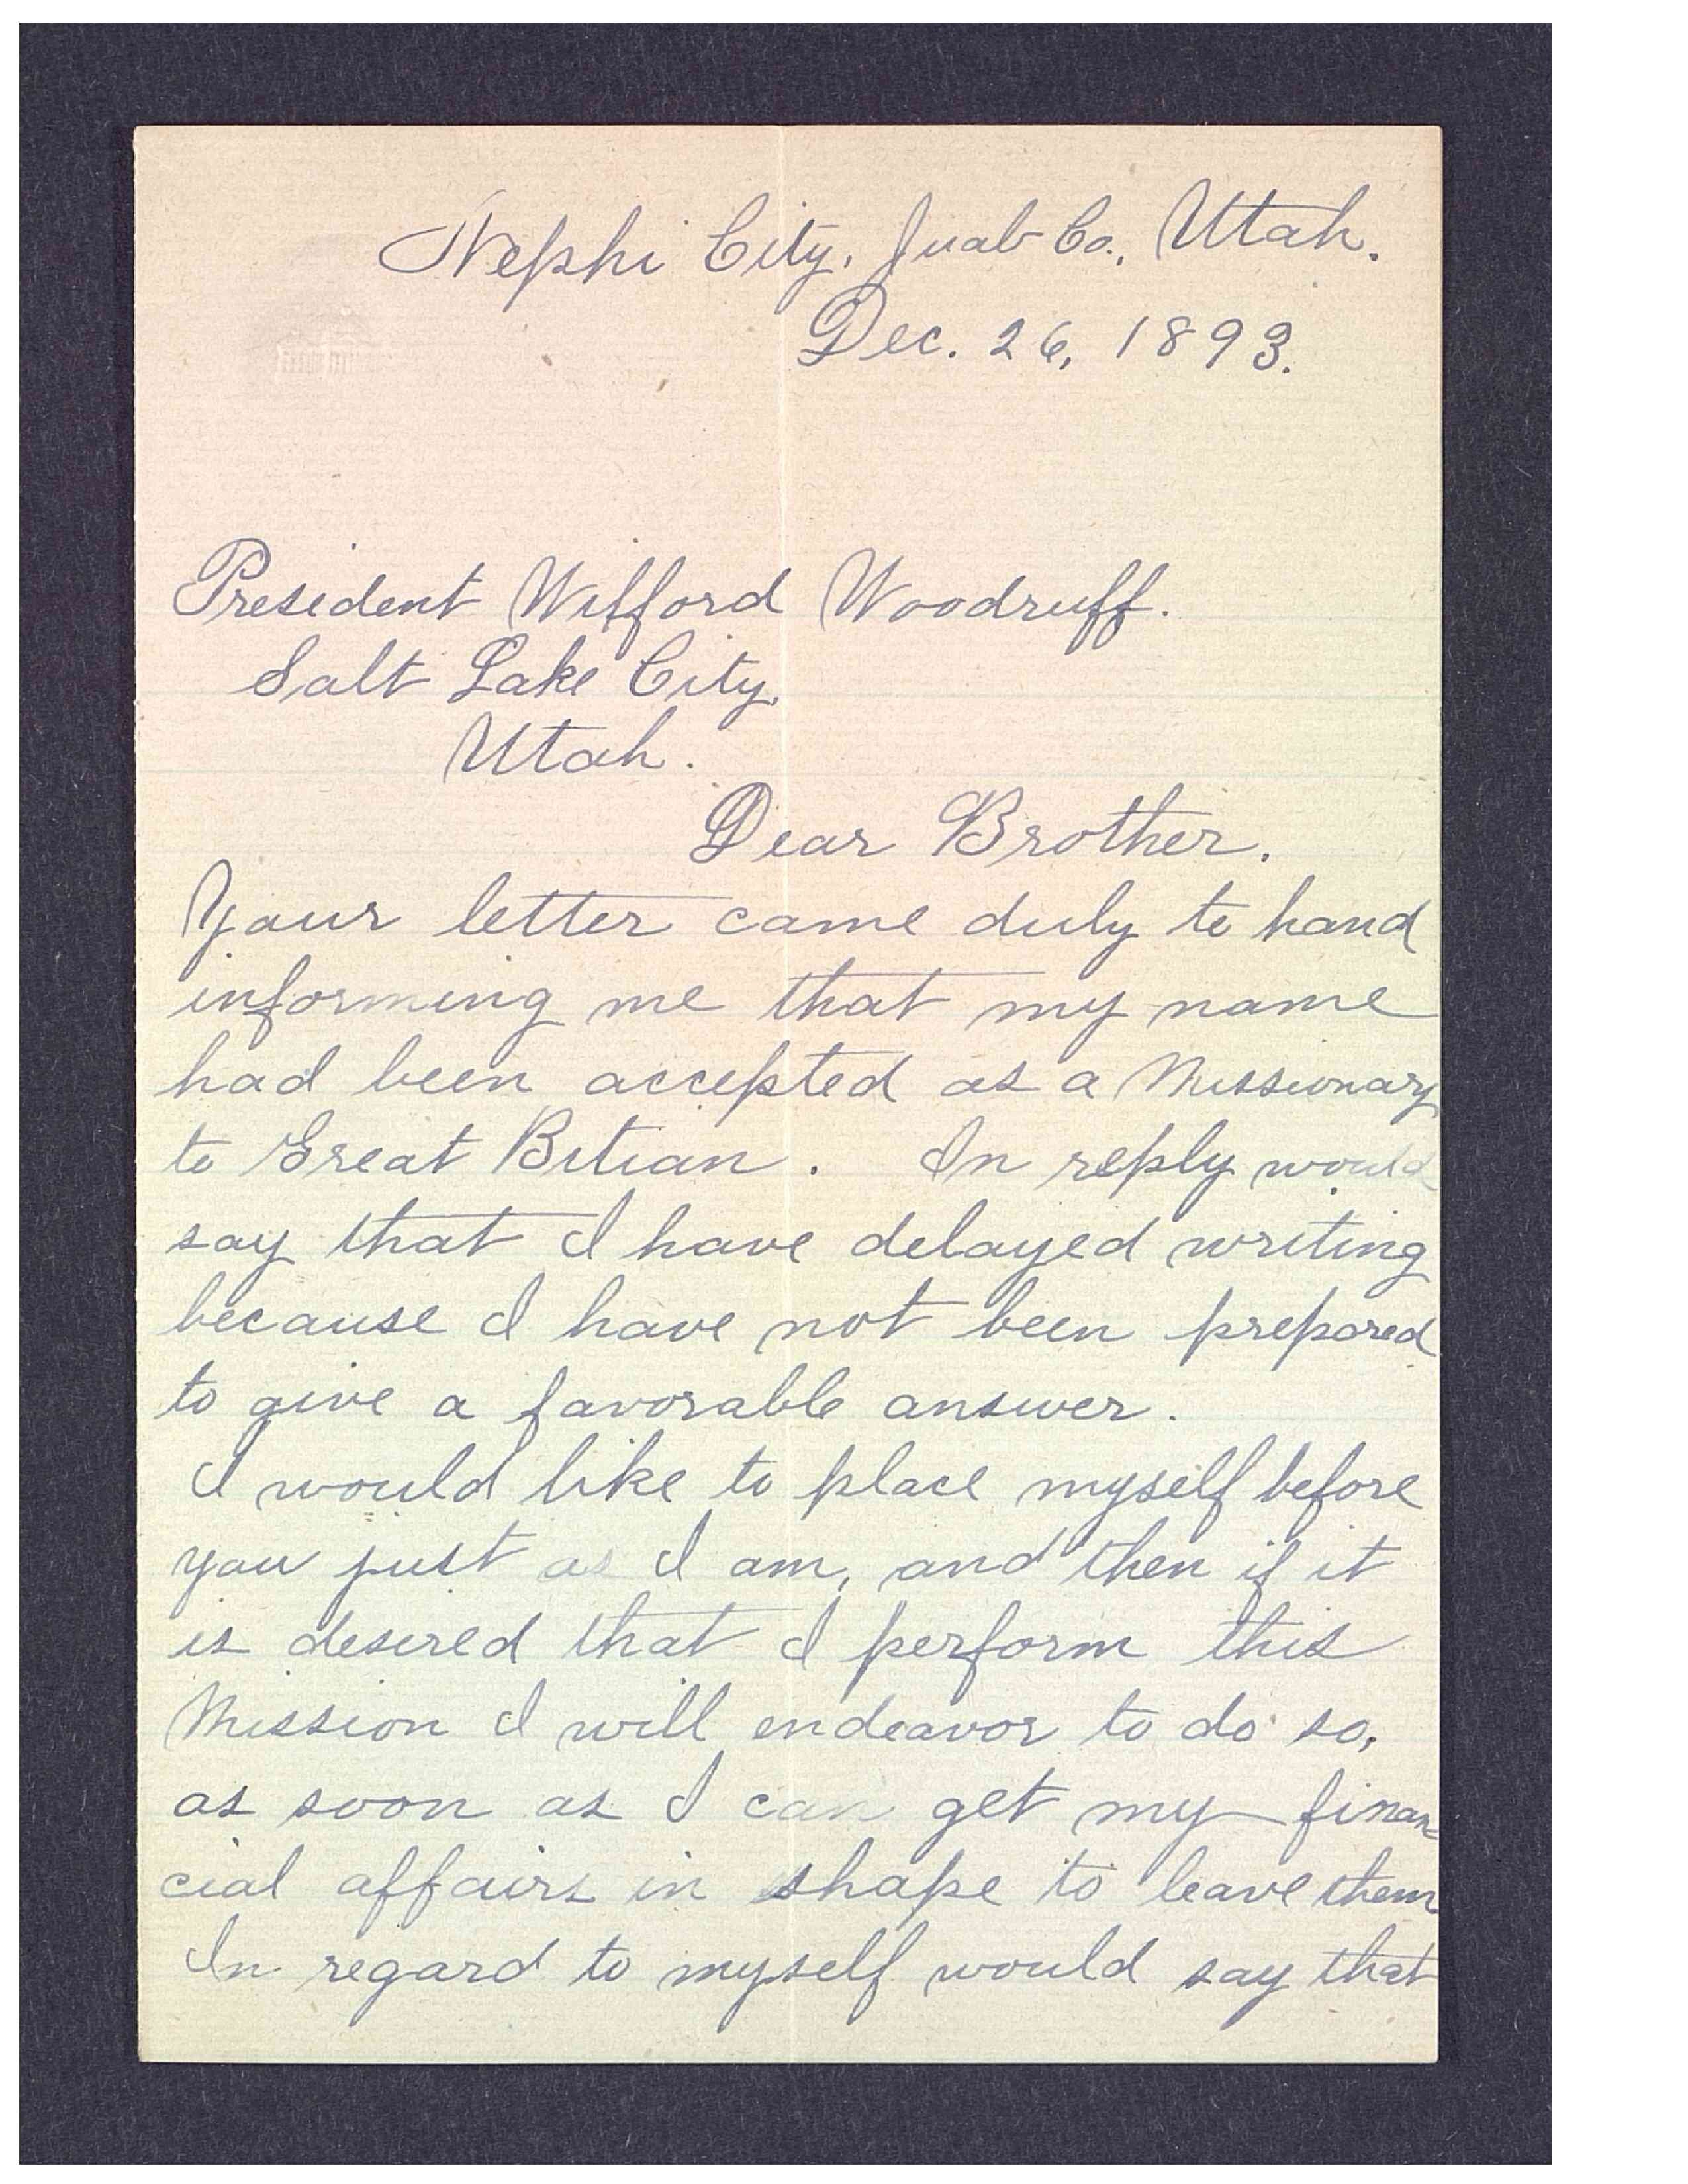 Nephi City, Juab Co., Utah.
Dec. 26, 1893.
President Wilford Woodruff.
Salt Lake City,
Utah.
Dear Brother.
Your letter came duly to hand
informing me that my name
had been accepted as a Missionary
to Great Bitian. In reply would
say that I have delayed writing
because I have not been prepared
to give a favorable answer.
I would like to place myself before
you just as I am, and then if it
is desired that I perform this
Mission I will endeavor to do so,
as soon as I can get my finan
cial affairs in shape to leave them
In regard to myself would say that